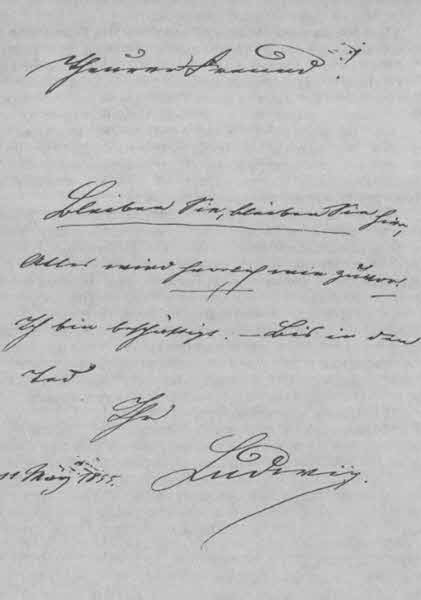 Theurer Freund!
Bleiben Sie, bleiben Sie hier,
Alles wird herrlich wie zuvor.
Ich bin beschäftigt. – Bis in den
Tod
Ihr
Ludwig.
11 May